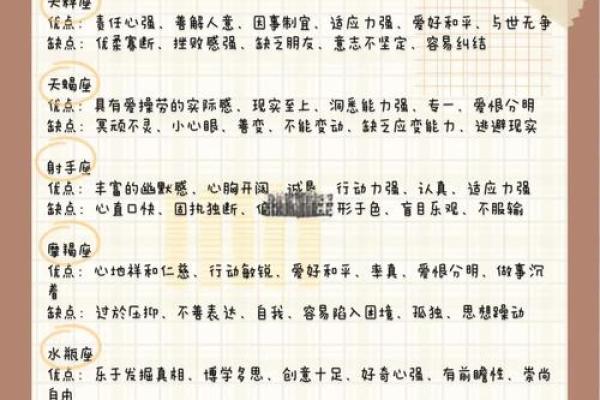 天秤座
优点：责任心强、善解人意、因事制宜、适应力强、爱好和平、与世无争
缺点：优柔寡断、挫败感强、缺乏朋友、意志不坚定、容易纠结
天蝎座
优点：具有爱操劳的实际感、现实至上、洞悉能力强、专一、爱恨分明
缺点：冥顽不灵、小心眼、善变、不能变动、缺乏应变能力、逃避现实
射手座
优点：丰富的幽默感、心胸开阔、诚恳、行动力强、认真、适应力强
缺点：心直口快、固执独断、偏 形于色、盲目乐观、不服输
摩羯座
优点：心地祥和仁慈、行动敏锐、爱好和平、率真、爱恨分明、做事沉
着
缺点：过於压抑、不善表达、自我、容易陷入困境、孤独、思想躁动
水瓶座
优点：乐于发掘真相、博学多思、创意十足、好奇心强、有前瞻性、崇尚
自由